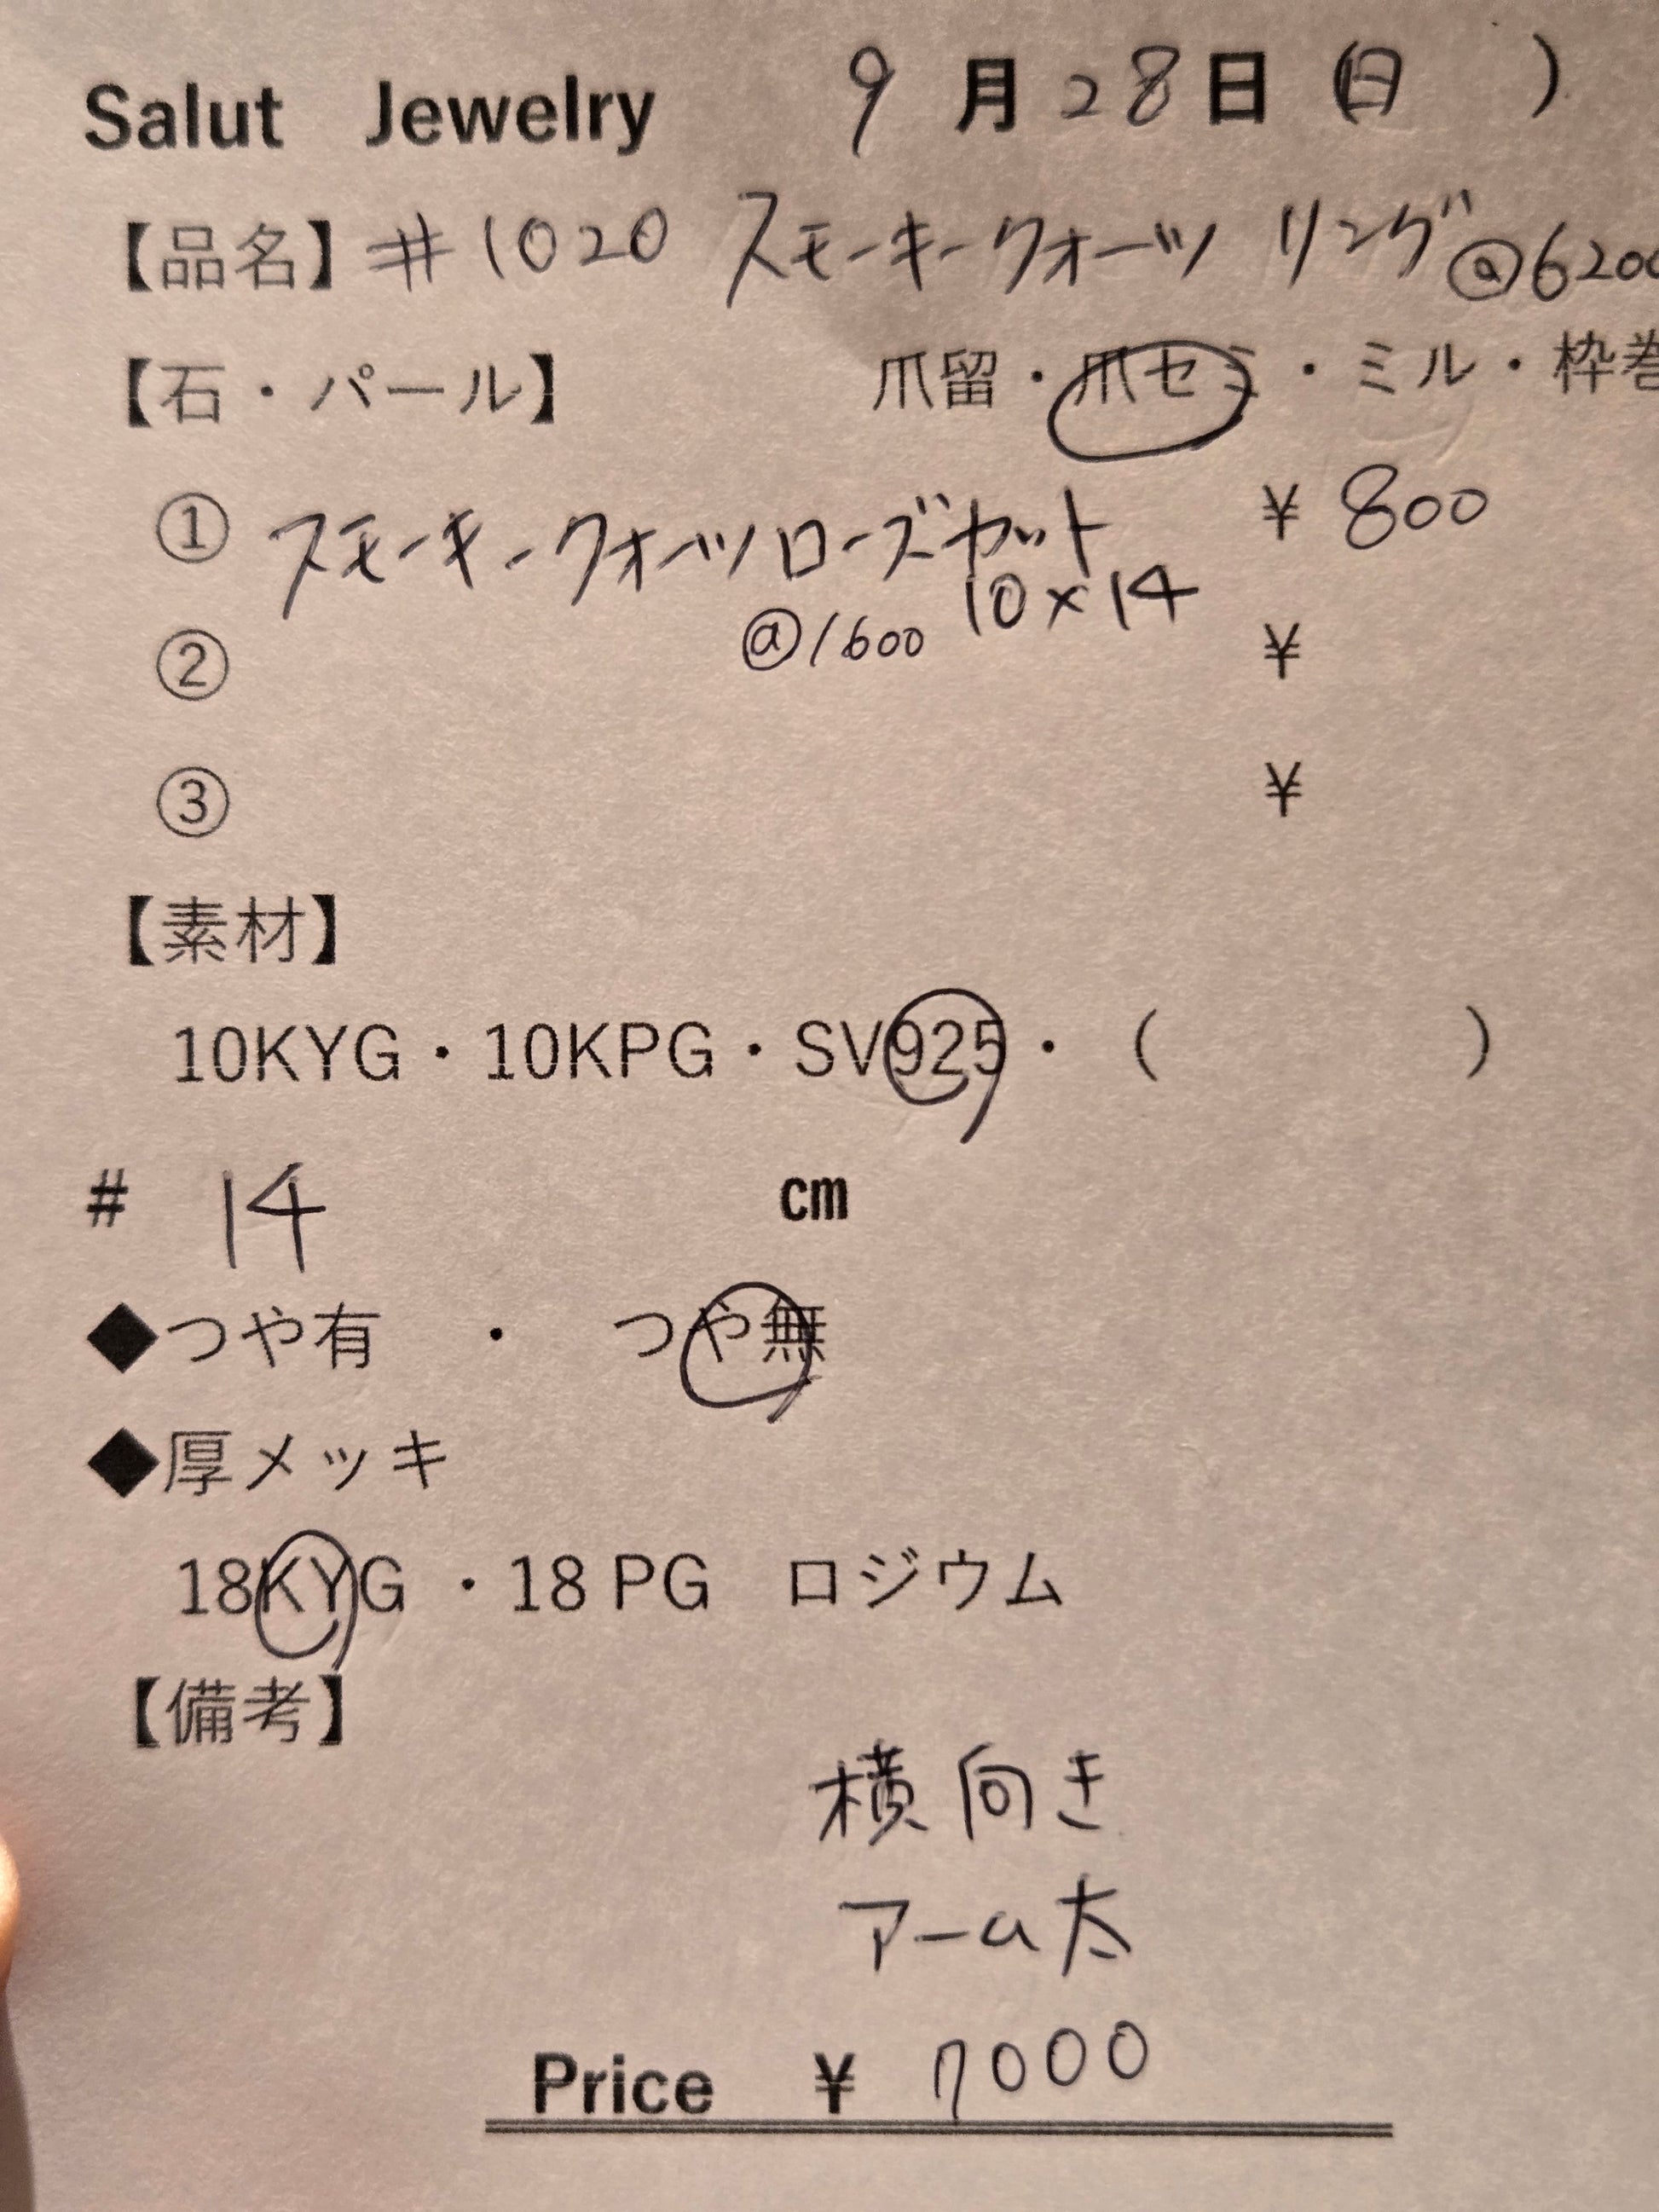 Salut Jewelry 9月28日(日 )
【品名】#1020 スモーキークォーツ リング @6200
【石・パール】 爪留・爪セミ・ミル・枠巻
① スモーキークォーツローズカット ¥800
10×14
@1600
② ¥
③ ¥
【素材】
10KYG・10KPG・SV925・( )
# 14 cm
◆つや有 ・ つや無
◆厚メッキ
18KYG ・18 PG ロジウム
【備考】
横向き
アーム太
Price ¥ 7000